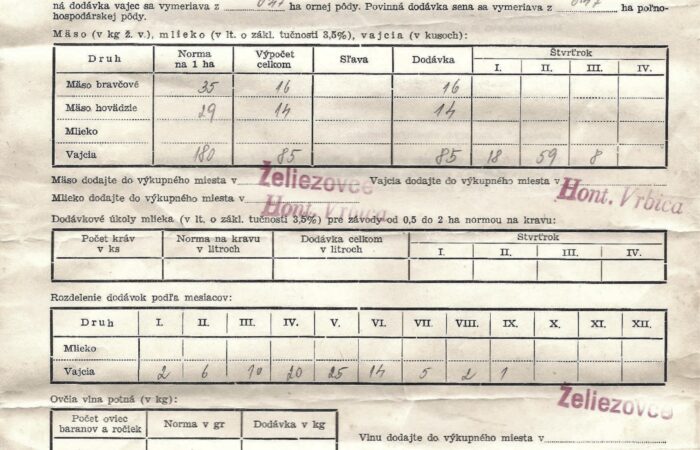 ná dodávka vajec sa vymeriava z ha ornej pôdy. Povinná dodávka sena sa vymeriava z ha poľno-
hospodárskej pôdy.
Mäso (v kg ž. v.), mlieko (v lt. o zákl. tučnosti 3,5%), vajcia (v kusoch):
Druh Norma na 1 ha Výpočet celkom Sľava Dodávka Štvrťrok
I. II. III. IV.
Mäso bravčové 35 16 16
Mäso hovädzie 29 14 14
Mlieko
Vajcia 180 85 85 18 59 8
Mäso dodajte do výkupného miesta v Želiezovce Vajcia dodajte do výkupného miesta v Hont. Vrbica
Mlieko dodajte do výkupného miesta v Hont. Vrbica
Dodávkové úkoly mlieka (v lt. o zákl. tučnosti 3,5%) pre závody od 0,5 do 2 ha normou na kravu:
Počet kráv v ks Norma na kravu v litroch Dodávka celkom v litroch Štvrťrok
I. II. III. IV.
Rozdelenie dodávok podľa mesiacov:
Druh I. II. III. IV. V. VI. VII. VIII. IX. X. XI. XII.
Mlieko
Vajcia 2 6 10 20 25 14 5 2 1
Ovčia vlna potná (v kg):
Želiezovce
Počet oviec baranov a ročiek Norma v gr Dodávka v kg
Vlnu dodajte do výkupného miesta v